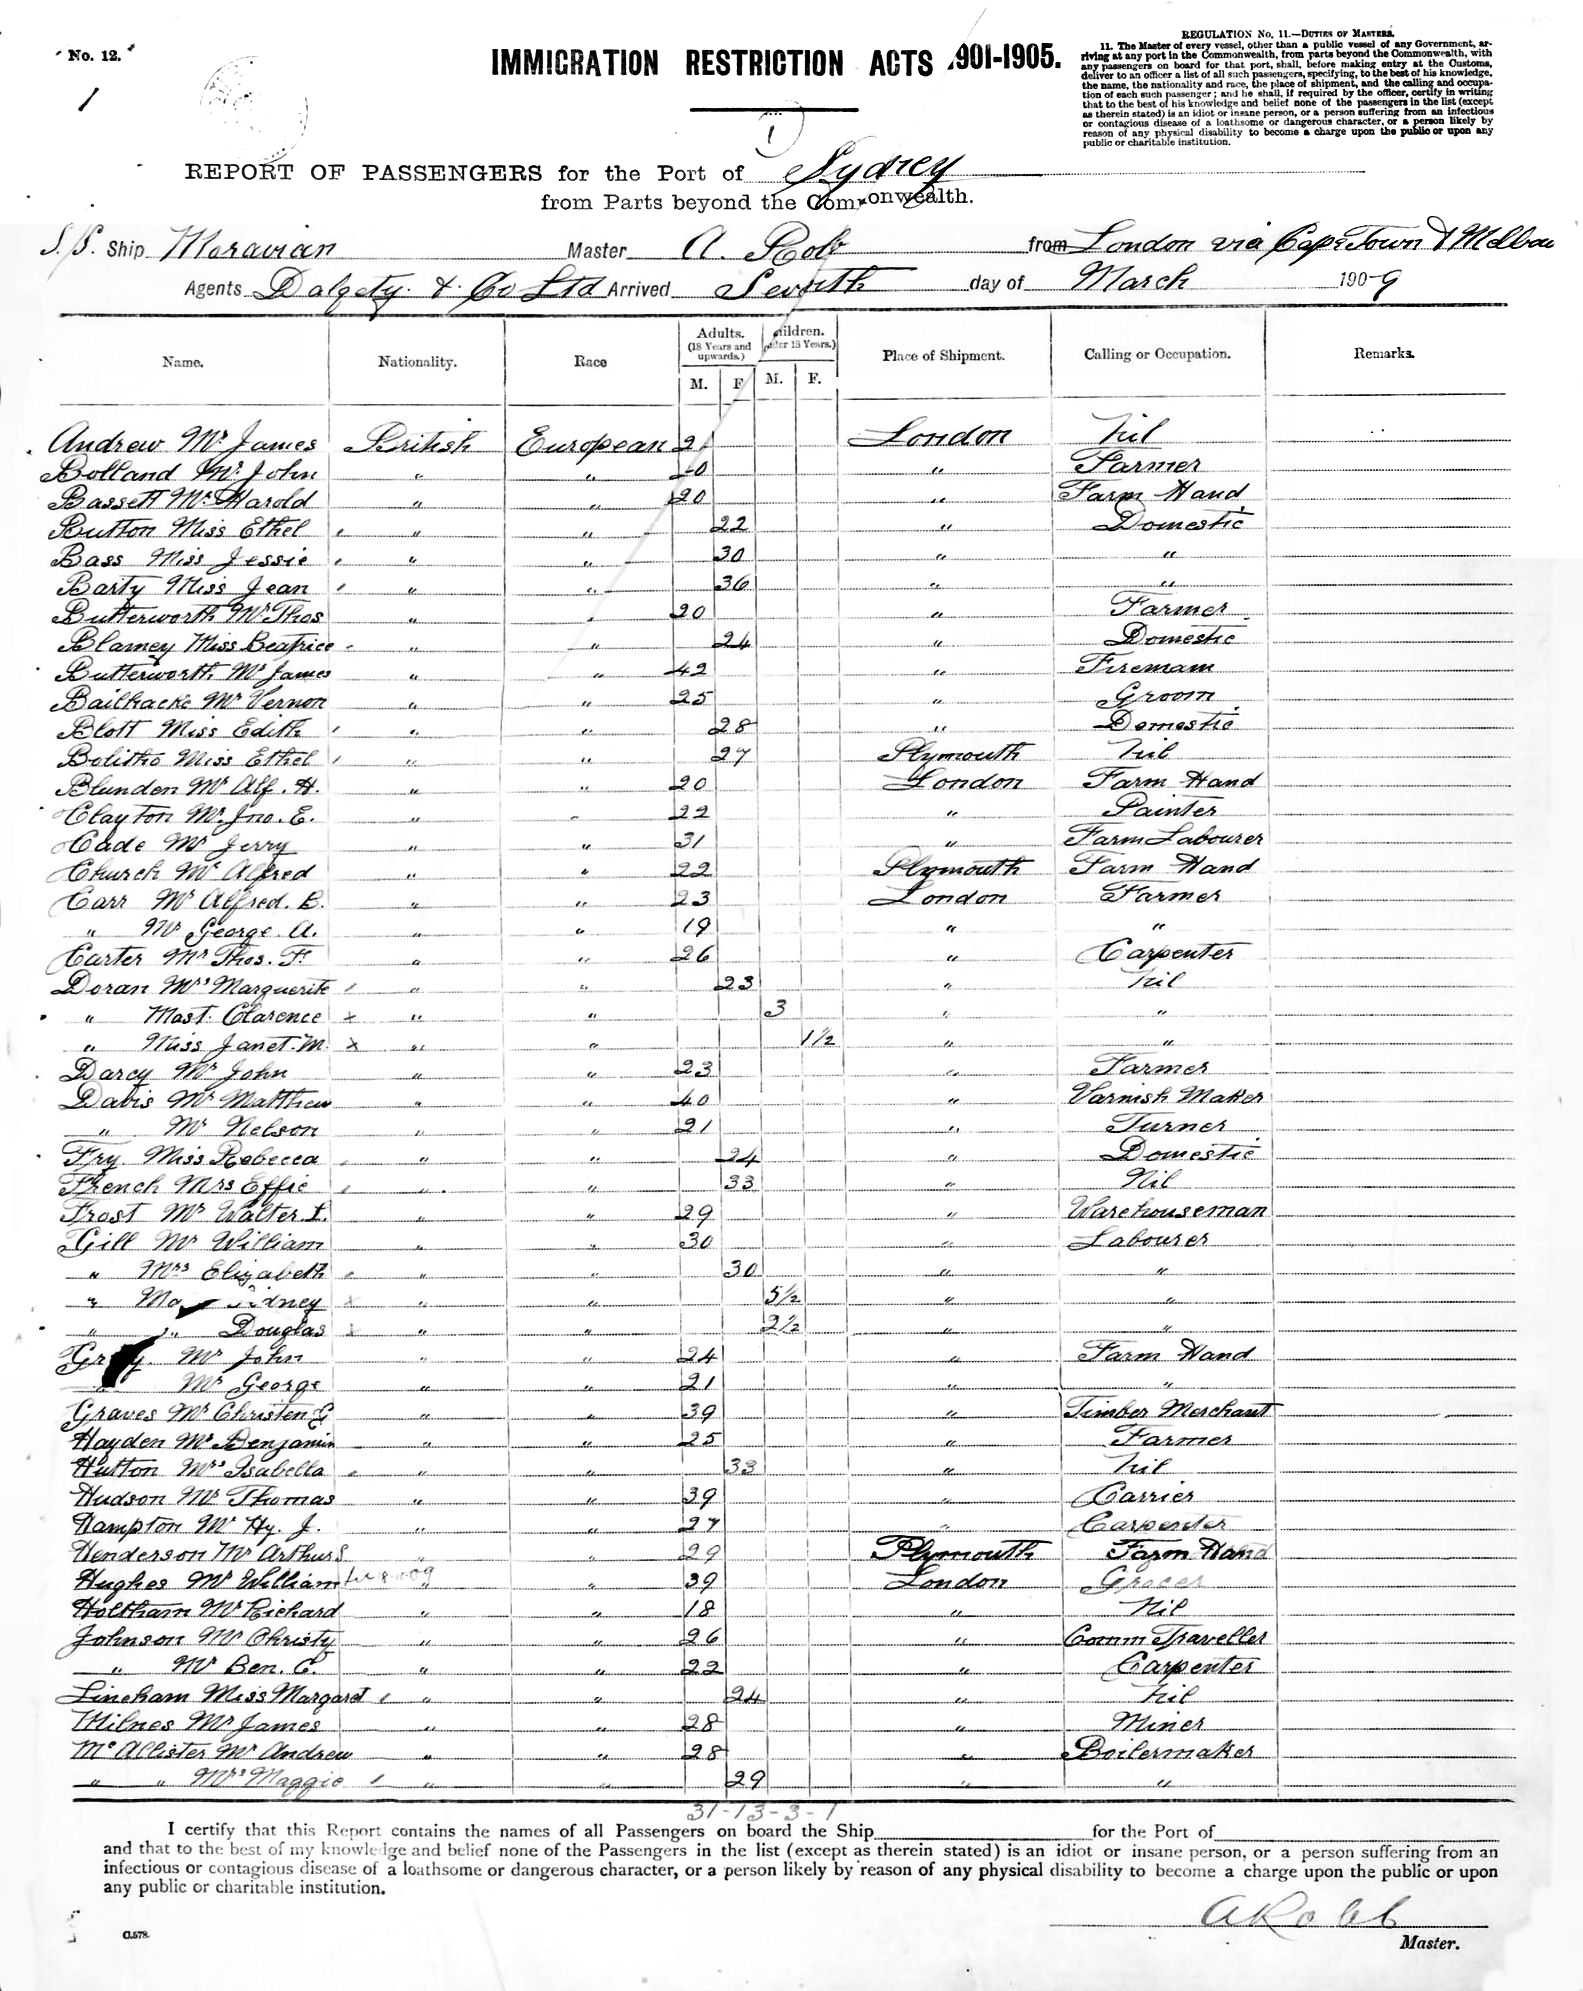 No. 12.
1
IMMIGRATION RESTRICTION ACTS 1901-1905.
REGULATION No. 11.—DUTIES OF MASTERS.
11. The Master of every vessel, other than a public vessel of any Government, ar-
riving at any port in the Commonwealth, from parts beyond the Commonwealth, with
any passengers on board for that port, shall, before making entry at the Customs,
deliver to an officer a list of all such passengers, specifying, to the best of his knowledge,
the name, the nationality and race, the place of shipment, and the calling and occupa-
tion of each such passenger; and he shall, if required by the officer, certify in writing
that to the best of his knowledge and belief none of the passengers in the list (except
as therein stated) is an idiot or insane person, or a person suffering from an infectious
or contagious disease of a loathsome or dangerous character, or a person likely by
reason of any physical disability to become a charge upon the public or upon any
public or charitable institution.
1
REPORT OF PASSENGERS for the Port of Sydney
from Parts beyond the Commonwealth.
S.S. Ship Moravian Master A. Robb from London via Cape Town & Melbou
Agents Dalgety & Co Ltd Arrived Seventh day of March 1909
Name. Nationality. Race Adults. (18 Years and upwards.) Children. (Under 18 Years.) Place of Shipment. Calling or Occupation. Remarks.
M. F. M. F.
Andrew Mr James British European 21 London Nil
Bolland Mr John " " 20 " Farmer
Bassett Mr Harold " " 20 " Farm Hand
Button Miss Ethel " " 22 " Domestic
Bass Miss Jessie " " 30 " "
Barty Miss Jean " " 36 " "
Butterworth Mr Thos " " 20 " Farmer
Blamey Miss Beatrice " " 24 " Domestic
Butterworth Mr James " " 42 " Firemam
Bailhache Mr Vernon " " 25 " Groom
Blott Miss Edith " " 28 " Domestic
Bolitho Miss Ethel " " 27 Plymouth Nil
Blunden Mr Alf. H. " " 20 London Farm Hand
Clayton Mr Jno. E. " " 22 " Painter
Cade Mr Jerry " " 31 " Farm Labourer
Church Mr Alfred " " 22 Plymouth Farm Hand
Carr Mr Alfred. B. " " 23 London Farmer
" Mr George. A. " " 19 " "
Carter Mr Thos. F. " " 26 " Carpenter
Doran Mrs Marguerite " " 23 " Nil
" Mast. Clarence x " " 3 " "
" Miss Janet. M. x " " 1½ " "
Darcy Mr John " " 23 " Farmer
Davis Mr Matthew " " 40 " Varnish Maker
" Mr Nelson " " 21 " Turner
Fry Miss Rebecca " " 24 " Domestic
French Mrs Effie " " 33 " Nil
Frost Mr Walter. I. " " 29 " Warehouseman
Gill Mr William " " 30 " Labourer
" Mrs Elizabeth " " 30 " "
" Sidney x " " 5½ " "
" " Douglas x " " 2½ " "
Gray. Mr John " " 24 " Farm Hand
" Mr George " " 21 " "
Graves Mr Christen G " " 39 " Timber Merchant
Hayden Mr Benjamin " " 25 " Farmer
Hutton Mrs Isabella " " 33 " Nil
Hudson Mr Thomas " " 39 " Carrier
Hampton Mr Hy. J. " " 27 " Carpenter
Henderson Mr Arthur S " " 29 Plymouth Farm Hand
Hughes Mr William " " 39 London Grocer
Holtham Mr Richard " " 18 " Nil
Johnson Mr Christy " " 26 " Comm Traveller
" Mr Ben. C. " " 22 " Carpenter
Lineham Miss Margaret " " 24 " Nil
Milnes Mr James " " 28 " Miner
McAllister Mr Andrew " " 28 " Boilermaker
" " Mrs Maggie " " 29 " "
31-13-3-1
I certify that this Report contains the names of all Passengers on board the Ship for the Port of
and that to the best of my knowledge and belief none of the Passengers in the list (except as therein stated) is an idiot or insane person, or a person suffering from an
infectious or contagious disease of a loathsome or dangerous character, or a person likely by reason of any physical disability to become a charge upon the public or upon
any public or charitable institution.
A Robb
C.578.
Master.